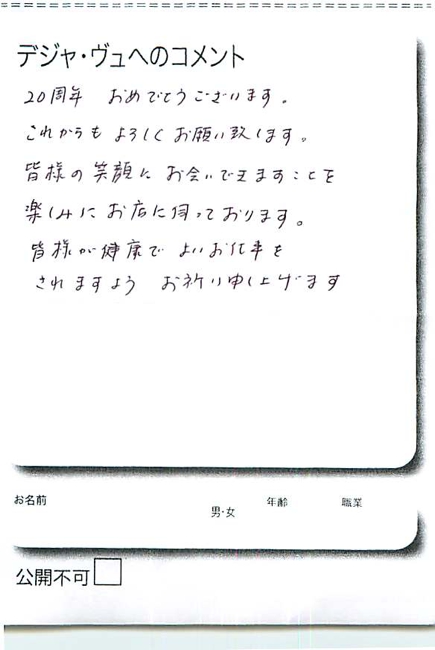 デジャ・ヴュへのコメント
20周年 おめでとうございます。
これからも よろしく お願い致します。
皆様の 笑顔に お会いできますことを
楽しみに お店に 伺っております。
皆様が 健康で よいお仕事を
されますよう お祈り申し上げます
お名前
男・女
年齢
職業
公開不可